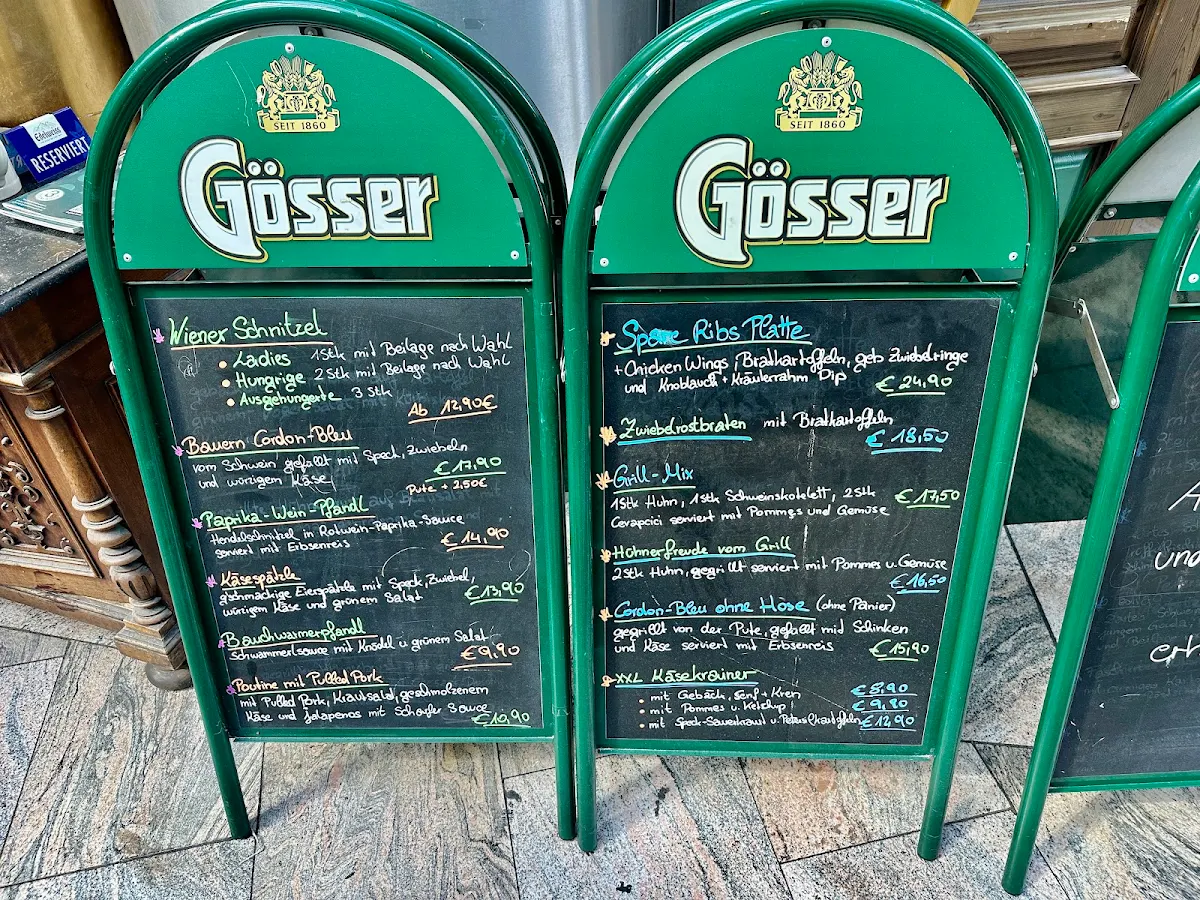 Edelweiss
RESERVIERT
SEIT 1860
Gösser
Wiener Schnitzel
Ladies 1Stk mit Beilage nach Wahl
Hungrige 2 Stk mit Beilage nach Wahl
Ausgehungerte 3 Stk
Ab 12,90€
Bauern Cordon-Bleu
vom Schwein gefüllt mit Speck, Zwiebeln
und würzigem Käse €17,90
Pute + 2,50€
Paprika-Wein-Pfandl
Hendelschnitzel in Rotwein-Paprika-Sauce
serviert mit Erbsenreis €14,90
Käsespätzle
gschmackige Eierspätzle mit Speck, Zwiebel,
würzigem Käse und grünem Salat €13,90
Bauchwärmerpfandl
Schwammerlsauce mit Knödel u grünem Salat
€9,90
Poutine mit Pulled Pork
mit Pulled Pork, Krautsalat, geschmolzenem
Käse und Jalapenos mit Scharfer Sauce
€10,90
SEIT 1860
Gösser
Spare Ribs Platte
+ Chicken Wings, Bratkartoffeln, geb Zwiebelringe
und Knoblauch + Kräuterrahm Dip €24,90
Zwiebelrostbraten mit Bratkartoffeln
€18,50
Grill-Mix
1Stk Huhn, 1Stk Schweinskotelett, 2Stk €17,50
Cevapcici serviert mit Pommes und Gemüse
Hühnerfreude vom Grill
2Stk Huhn, gegrillt serviert mit Pommes u. Gemüse
€16,50
Cordon-Bleu ohne Hose (ohne Panier)
gegrillt von der Pute, gefüllt mid Schinken
und Käse serviert mit Erbsenreis €15,90
XXL Käsekrainer
mit Gebäck, Senf + Kren €8,90
mit Pommes u. Ketchup €9,80
mit Speck-Sauerkraut u. Petersilkartoffeln €12,90
und